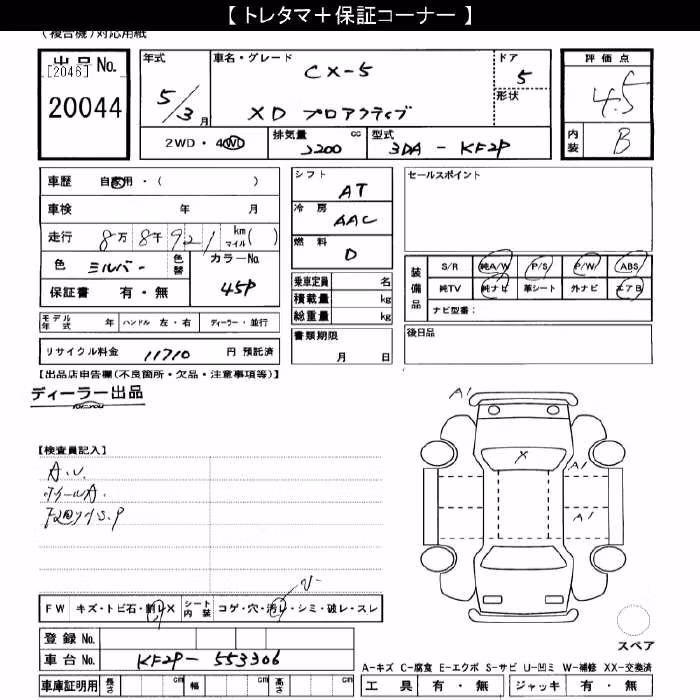 【 トレタマ＋保証コーナー 】
(複合機)対応用紙
出品 No.
[2046]
20044
年式
5/3 月
車名・グレード
CX-5
XD プロアクティブ
ドア
5
形状
評価点
4.5
内装 B
2WD・4WD
排気量 2200 cc
型式 3DA - KF2P
車歴 自家用・( )
車検 年 月
走行 8万 8千 921 km マイル ( )
色 ミルバー 色替
カラーNo. 45P
保証書 有・無
シフト AT
冷房 AAC
燃料 D
乗車定員 名
積載量 kg
総重量 kg
書類期限
月 日
セールスポイント
装備品
S/R 純A/W P/S P/W ABS
純TV 純ナビ 革シート 外ナビ エアB
ナビ型番：
後日品
モデル年式 年 ハンドル 左・右 ディーラー・並行
リサイクル料金 11710 円 預託済
【出品店申告欄(不良箇所・欠品・注意事項等)】
ディーラー出品
【検査員記入】
A.U.
ホイールA.
A1
X
A1
A1
FW キズ・トビ石・割レX シート内装 コゲ・穴・汚レ・シミ・破レ・スレ
登録 No.
車台 No. KF2P- 553306
車庫証明用 長さ cm 幅 cm 高さ cm
スペア
A-キズ C-腐食 E-エクボ S-サビ U-凹ミ W-補修 XX-交換済
工具 有・無 ジャッキ 有・無